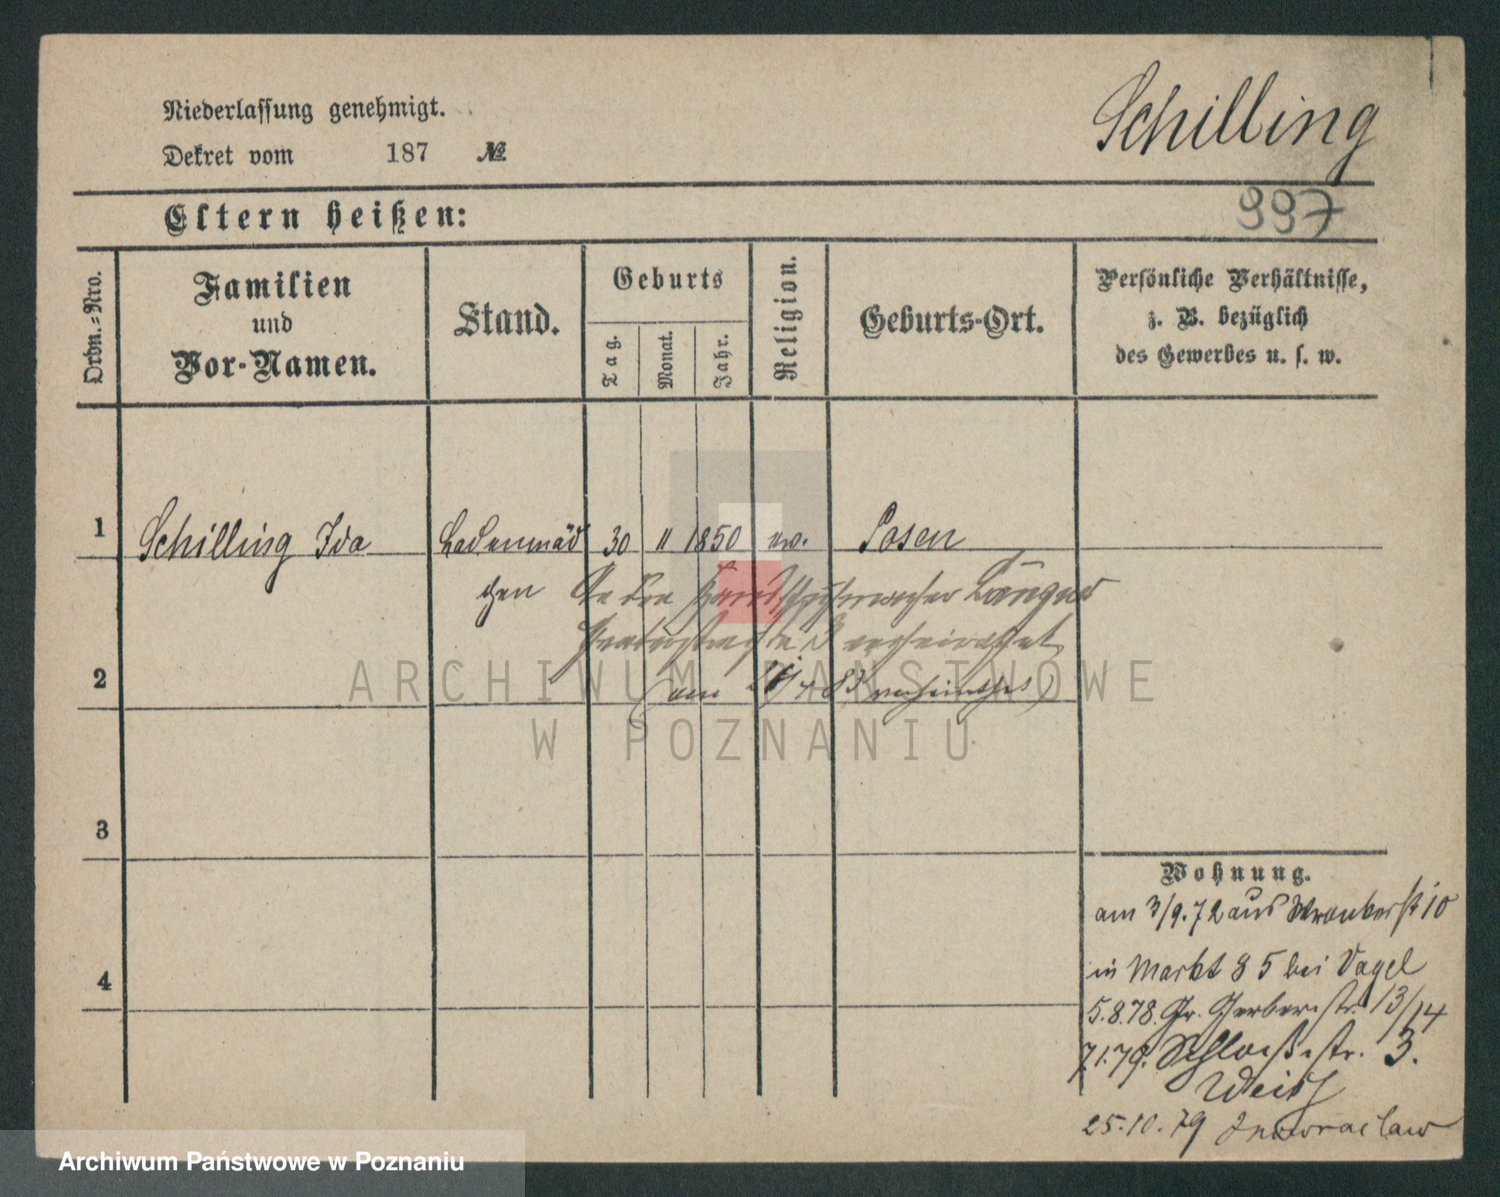 Schilling
Niederlassung genehmigt.
Dekret vom 187 №
Eltern heißen:
997
Ordn.-Nro.
Familien
und
Vor-Namen.
Stand.
Geburts
Tag.
Monat.
Jahr.
Religion.
Geburts-Ort.
Persönliche Verhältnisse,
z. B. bezüglich
des Gewerbes u. s. w.
1 Schilling Ida Ladenmäd 30 11 1850 ev. Posen
chen An den Handschuhmacher
verheirathet
2 (am 83 verheirathet)
ARCHIWUM PAŃSTWOWE
W POZNANIU
3
4
Wohnung.
am 3/9.72 aus 10
in Markt 85 bei Vogel
5.8.78. Gr. Gerberstr. 13/14
7.1.79. Schloßstr. 3.
Weiss
25.10.79 Inowraclaw
Archiwum Państwowe w Poznaniu